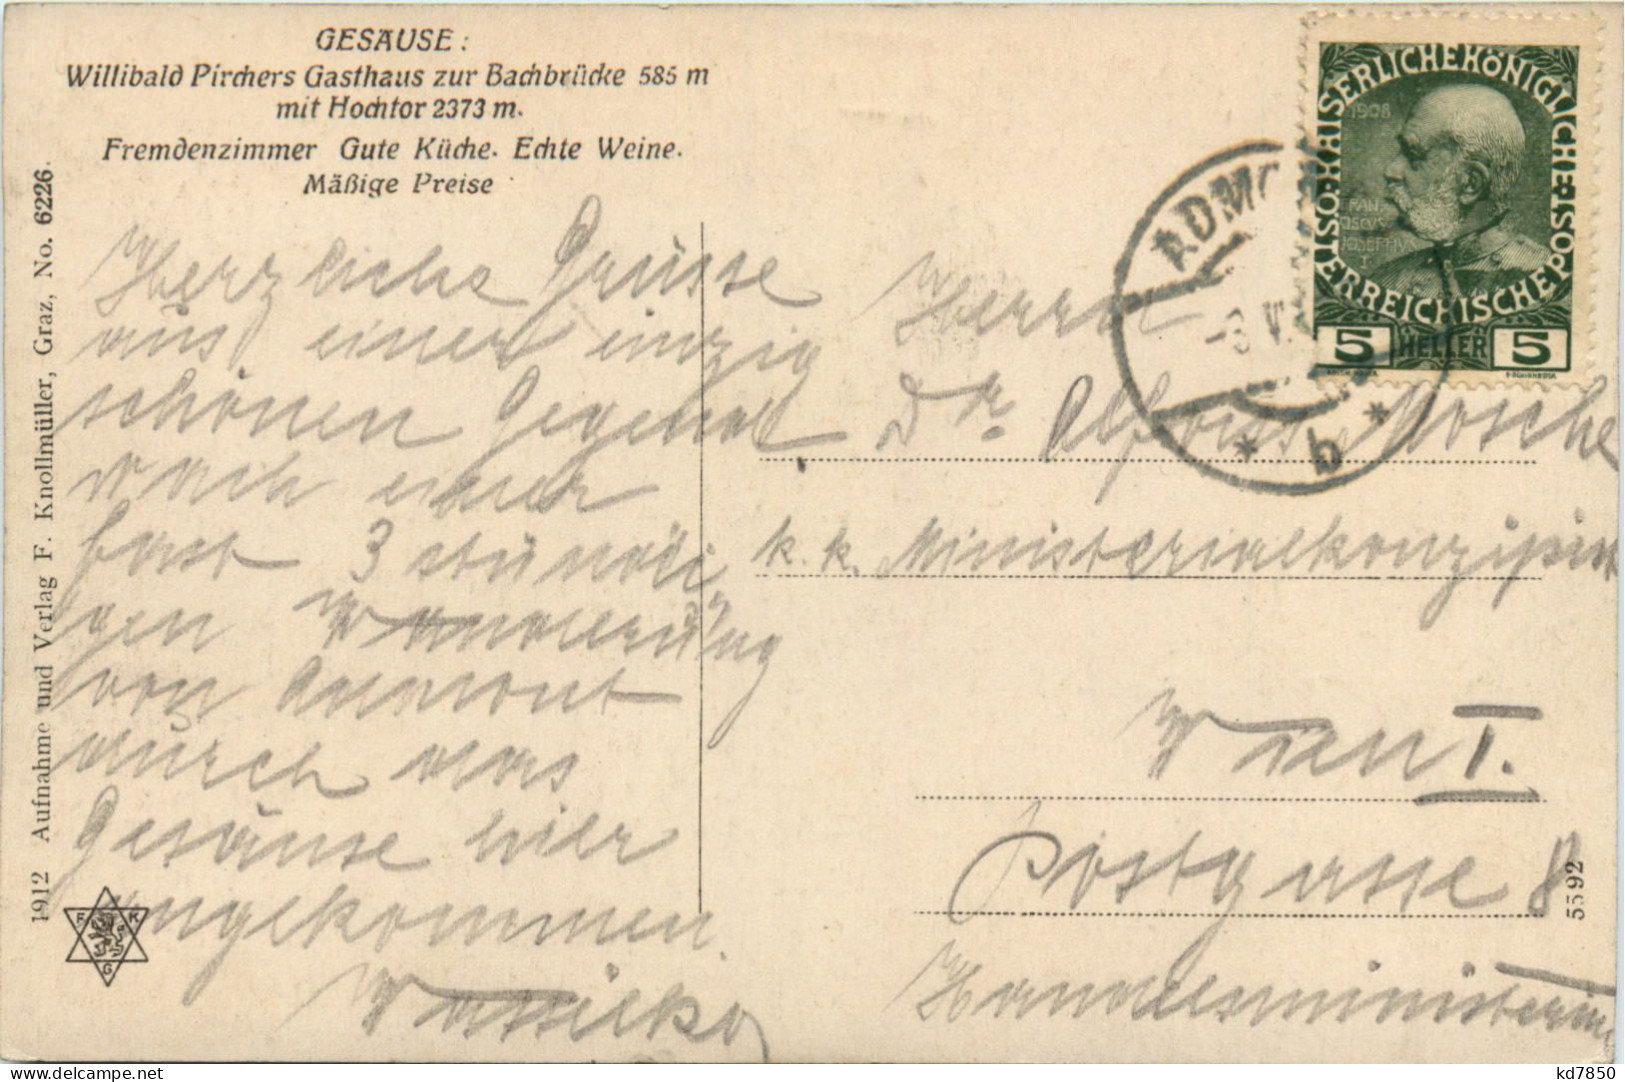 GESÄUSE:
Willibald Pirchers Gasthaus zur Bachbrücke 585 m
mit Hochtor 2373 m.
Fremdenzimmer Gute Küche. Echte Weine.
Mäßige Preise
1912 Aufnahme und Verlag F. Knollmüller, Graz, No. 6226.
F K
G
Herzliche Grüsse
aus einer einzig
schönen Gegend
nach einer
fast 3 stündi
gen Wanderung
von Admont
durch das
Gesäuse hier
angekommen.
Wassilko
ÖSTERREICHISCHE POST KAISERLICHE KÖNIGLICHE
1908
FRAN
CISCVS
IOSEPHVS
I
5 HELLER 5
ADMO
-3 V
* b *
Herrn
Dr. Alfons Mosche
k. k. Ministerialkonzipist
Wien I.
Postgasse 8
Handelsministerium
5592
kd7850